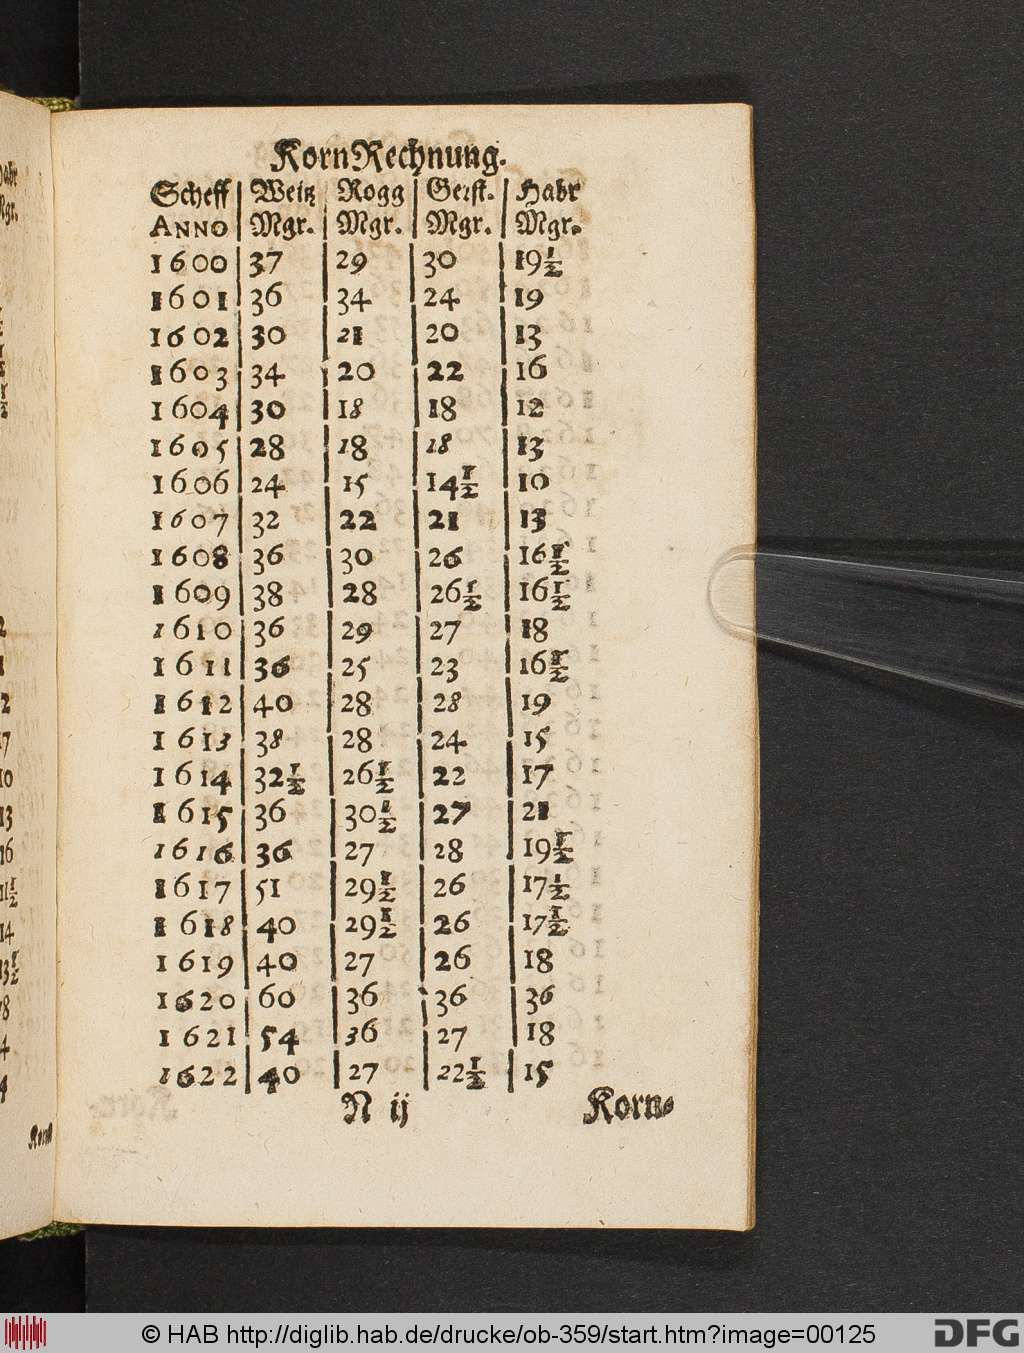 KornRechnung.
Scheff Weitz Rogg Gerst. Habr
ANNO Mgr. Mgr. Mgr. Mgr.
1600 37 29 30 19½
1601 36 34 24 19
1602 30 21 20 13
1603 34 20 22 16
1604 30 18 18 12
1605 28 18 18 13
1606 24 15 14½ 10
1607 32 22 21 13
1608 36 30 26 16½
1609 38 28 26½ 16½
1610 36 29 27 18
1611 36 25 23 16½
1612 40 28 28 19
1613 38 28 24 15
1614 32½ 26½ 22 17
1615 36 30½ 27 21
1616 36 27 28 19½
1617 51 29½ 26 17½
1618 40 29½ 26 17½
1619 40 27 26 18
1620 60 36 36 36
1621 54 36 27 18
1622 40 27 22½ 15
N ij Korn-
© HAB http://diglib.hab.de/drucke/ob-359/start.htm?image=00125
DFG